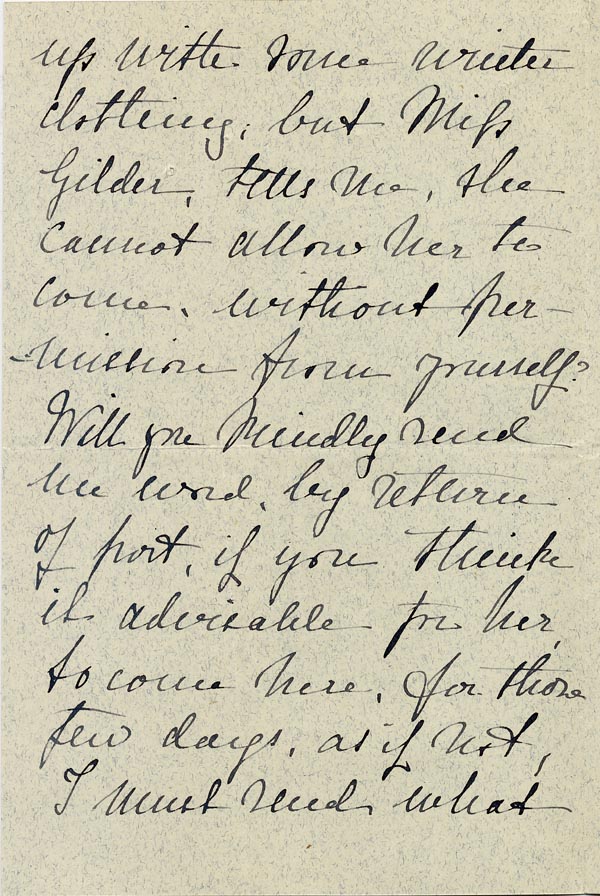 up with some winter
clothing, but Miss
Gilder, tells me, she
cannot allow her to
come, without per-
-mission from yourself?
Will you kindly send
me word, by return
of post, if you think
it advisable for her,
to come here, for those
few days, as if not,
I must send what